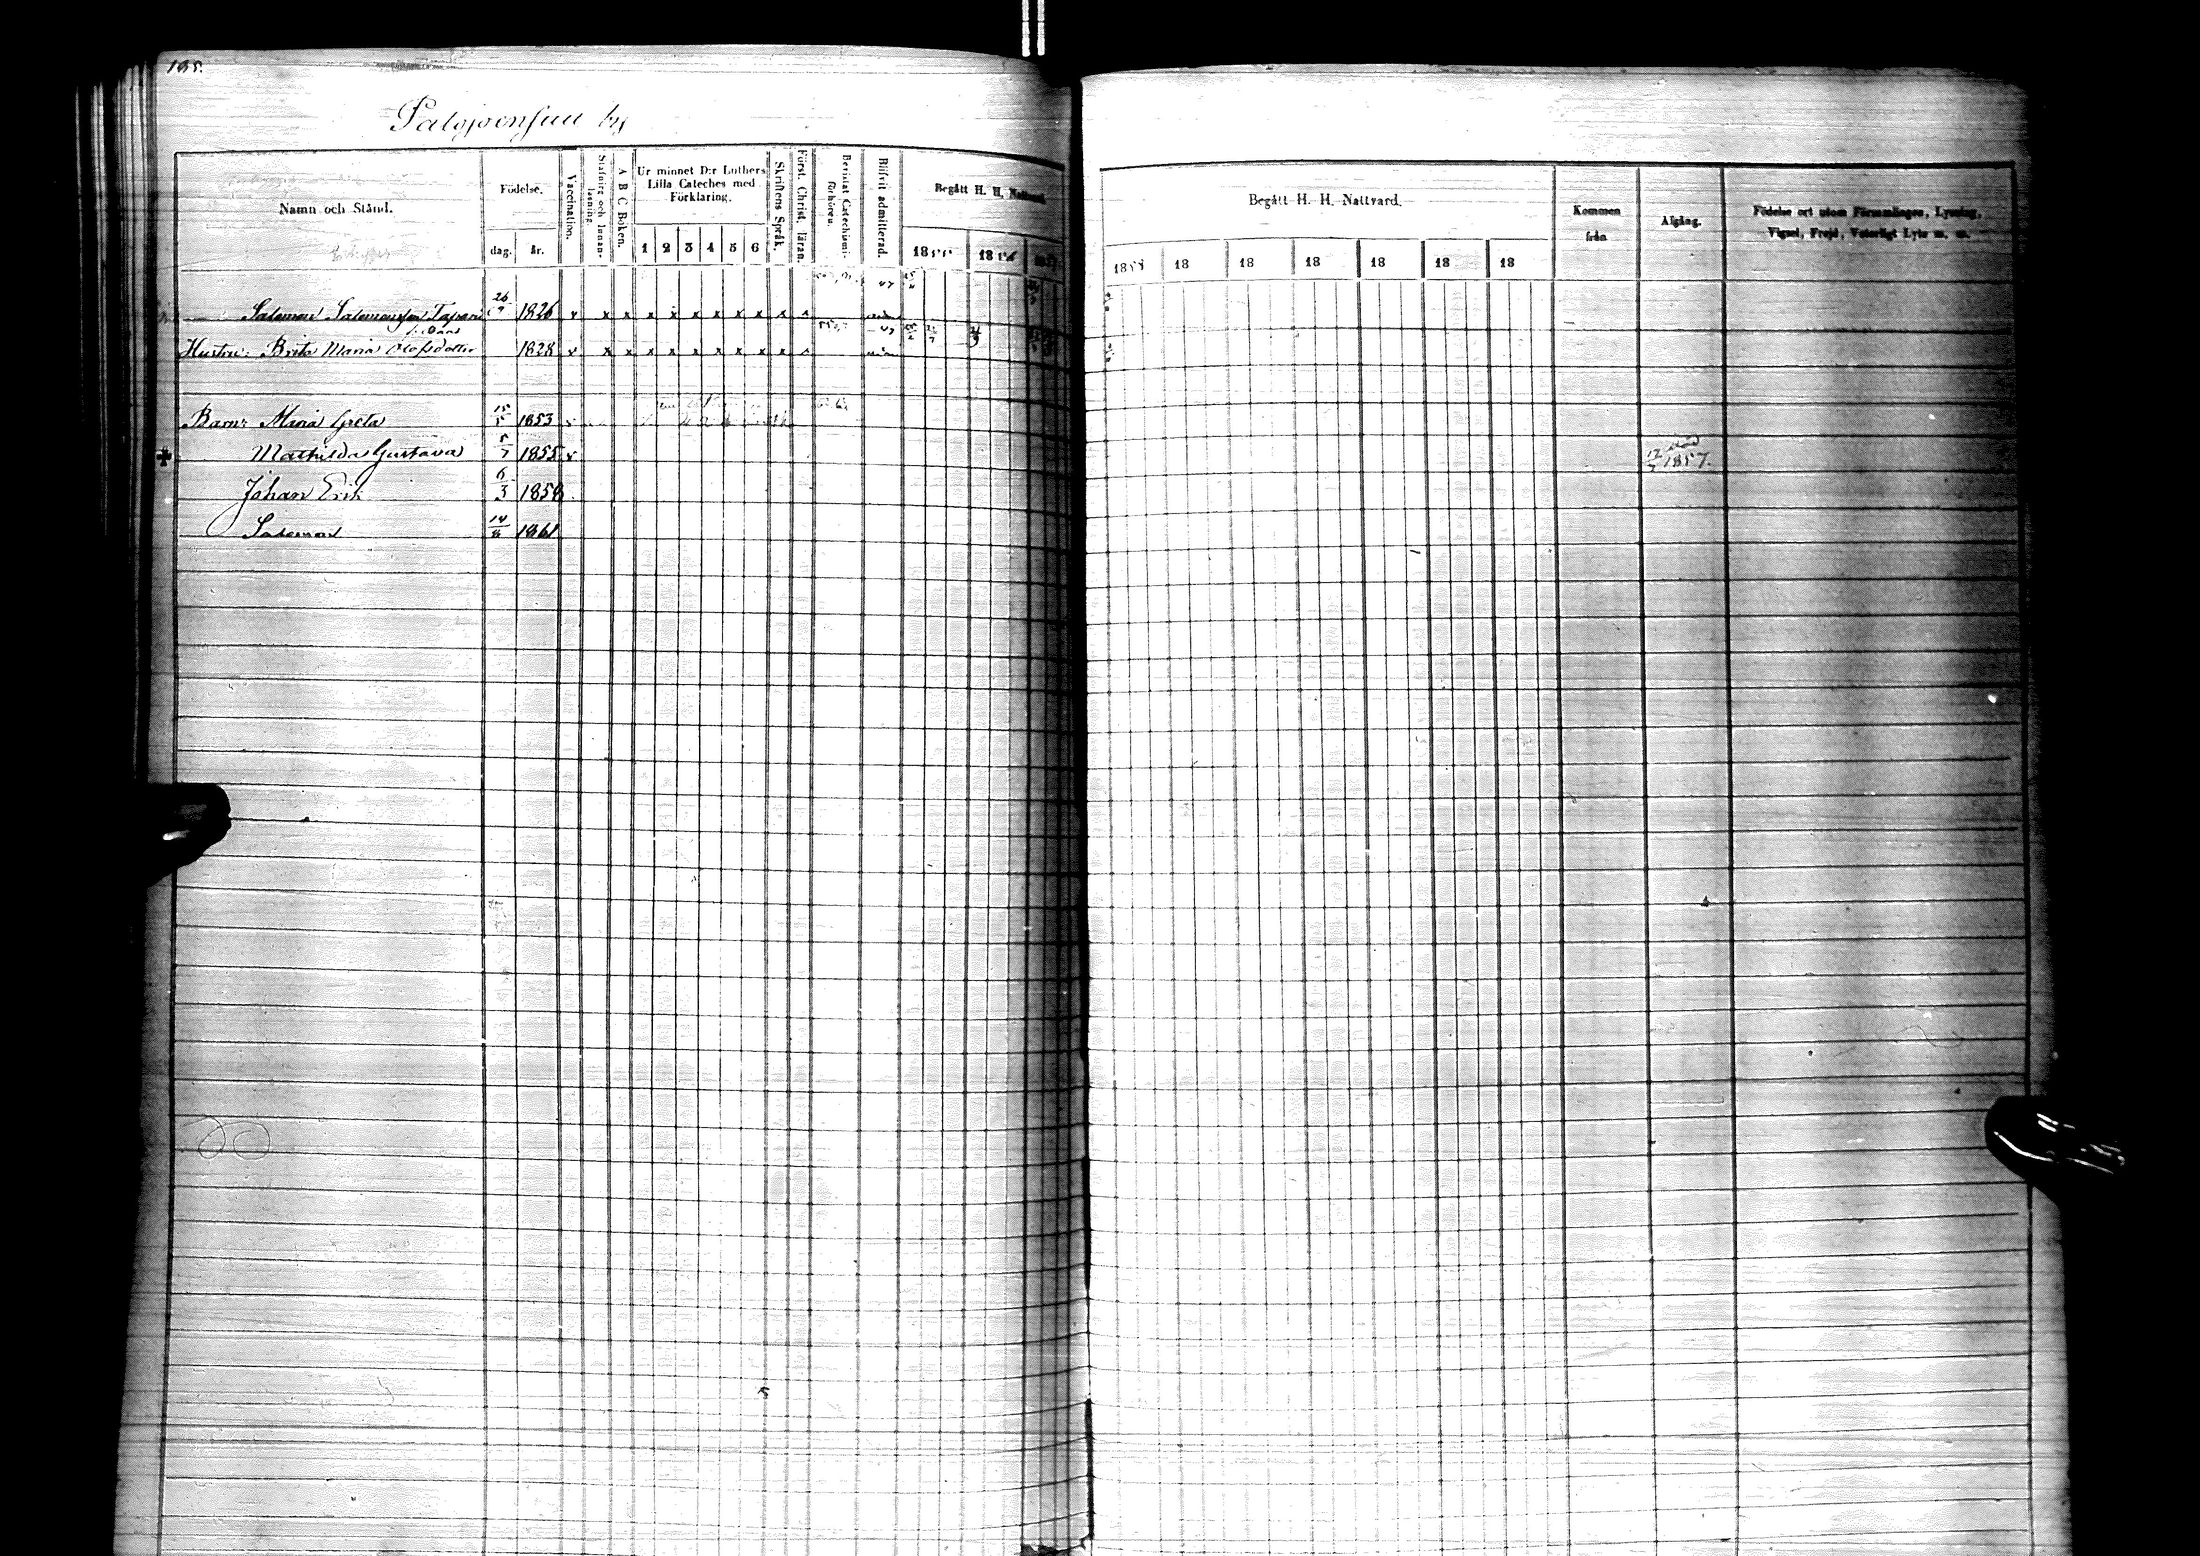 195.
Palojoensuu by
Namn och Stånd.
Födelse.
dag. år.
Vaccination.
Stafning och Innan-läsning
A B C Boken.
Ur minnet D:r Luthers
Lilla Cateches med
Förklaring.
1 2 3 4 5 6
Skriftens Språk.
Först. Christ. läran.
Bevistat Catechismi-förhören.
Blifvit admitterad.
Begått H. H. Nattvard.
1855 1856
Begått H. H. Nattvard.
1858 18 18 18 18 18 18
Kommen
från
Afgång.
Födelse ort utom Församlingen, Lysning,
Vigsel, Frejd, Vaterligt Lyte m. m.
Salomon Salomonsson 26 1826 x x x x x x x x x x x 47
Hustru: Brita Maria Olofsdotter 1828 x x x x x x x x x x x 47
Barn: Maria Greta 15/5 1853
Mathilda Gustava 5/7 1855 x 12/7 1857.
Johan Erik 6/3 1858
Salomon 14/8 1861